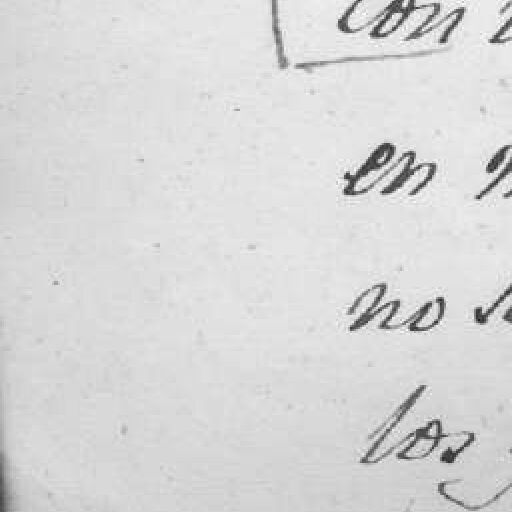 con
en
no
los